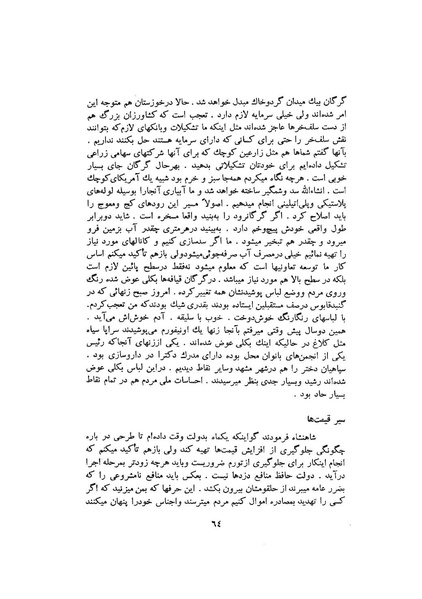 گرگان بیك میدان گردوخاك مبدل خواهد شد . حالا درخوزستان هم متوجه این
امر شده‌اند ولی خیلی سرمایه لازم دارد . تعجب است که کشاورزان بزرگ هم
از دست سلف‌خرها عاجز شده‌اند مثل اینکه ما تشکیلات وبانکهای لازم‌که بتوانند
نقش سلف‌خر را حتی برای کسانی که دارای سرمایه هستند حل بکنند نداریم .
بآنها گفتم شماها هم مثل زارعین کوچك که برای آنها شرکتهای سهامی زراعی
تشکیل داده‌ایم برای خودتان تشکیلاتی بدهید . بهرحال گرگان جای بسیار
خوبی است . هرچه نگاه میکردم همه‌جا سبز و خرم بود شبیه یك آمریکای‌کوچك
است . انشاءالله سد وشمگیر ساخته خواهد شد و ما آبیاری آنجارا بوسیله لوله‌های
پلاستیکی وپلی‌اتیلینی انجام میدهیم . اصولا مسیر این رودهای کج ومعوج را
باید اصلاح کرد . اگر گرگانرود را به‌بنید واقعا مسخره است . شاید دوبرابر
طول واقعی خودش پیچ‌وخم دارد . به‌بینید درهرمتری چقدر آب بزمین فرو
میرود و چقدر هم تبخیر میشود . ما اگر سدسازی کنیم و کانالهای مورد نیاز
را تهیه نمائیم خیلی درمصرف آب صرفه‌جوئی‌میشودولی بازهم تأکید میکنم اساس
کار ما توسعه تعاونیها است که معلوم میشود نه‌فقط درسطح پائین لازم است
بلکه در سطح بالا هم مورد نیاز میباشد . درگرگان قیافه‌ها بکلی عوض شده رنگ
وروی مردم ووضع لباس پوشیدنشان همه تغییرکرده . امروز صبح زنهائی که در
گنبدقابوس درصف مستقبلین ایستاده بودند بقدری شیك بودندکه من تعجب‌کردم.
با لباسهای رنگارنگ خوش‌دوخت . خوب با سلیقه . آدم خوش‌اش می‌آید .
همین دوسال پیش وقتی میرفتم بآنجا زنها یك اونیفورم می‌پوشیدند سراپا سیاه
مثل کلاغ در حالیکه اینك بکلی عوض شده‌اند . یکی اززنهای آنجاکه رئیس
یکی از انجمن‌های بانوان محل بوده دارای مدرك دکترا در داروسازی بود .
سپاهیان دختر را هم درشهر مشهد وسایر نقاط دیدیم . دراین لباس بکلی عوض
شده‌اند رشید وبسیار جدی بنظر میرسیدند . احساسات ملی مردم هم در تمام نقاط
بسیار حاد بود .
سیر قیمت‌ها
شاهنشاه فرمودند گواینکه یکماه بدولت وقت داده‌ام تا طرحی در باره
چگونگی جلوگیری از افزایش قیمت‌ها تهیه کند ولی بازهم تأکید میکنم که
انجام اینکار برای جلوگیری ازتورم ضروریست وباید هرچه زودتر بمرحله اجرا
درآید . دولت حافظ منافع دزدها نیست . بعکس باید منافع نامشروعی را که
بضرر عامه میبرند از حلقومشان بیرون بکشد . این حرفها که بمن میزنید که اگر
کسی را تهدید بمصادره اموال کنیم مردم میترسند واجناس خودرا پنهان میکنند
٦٤